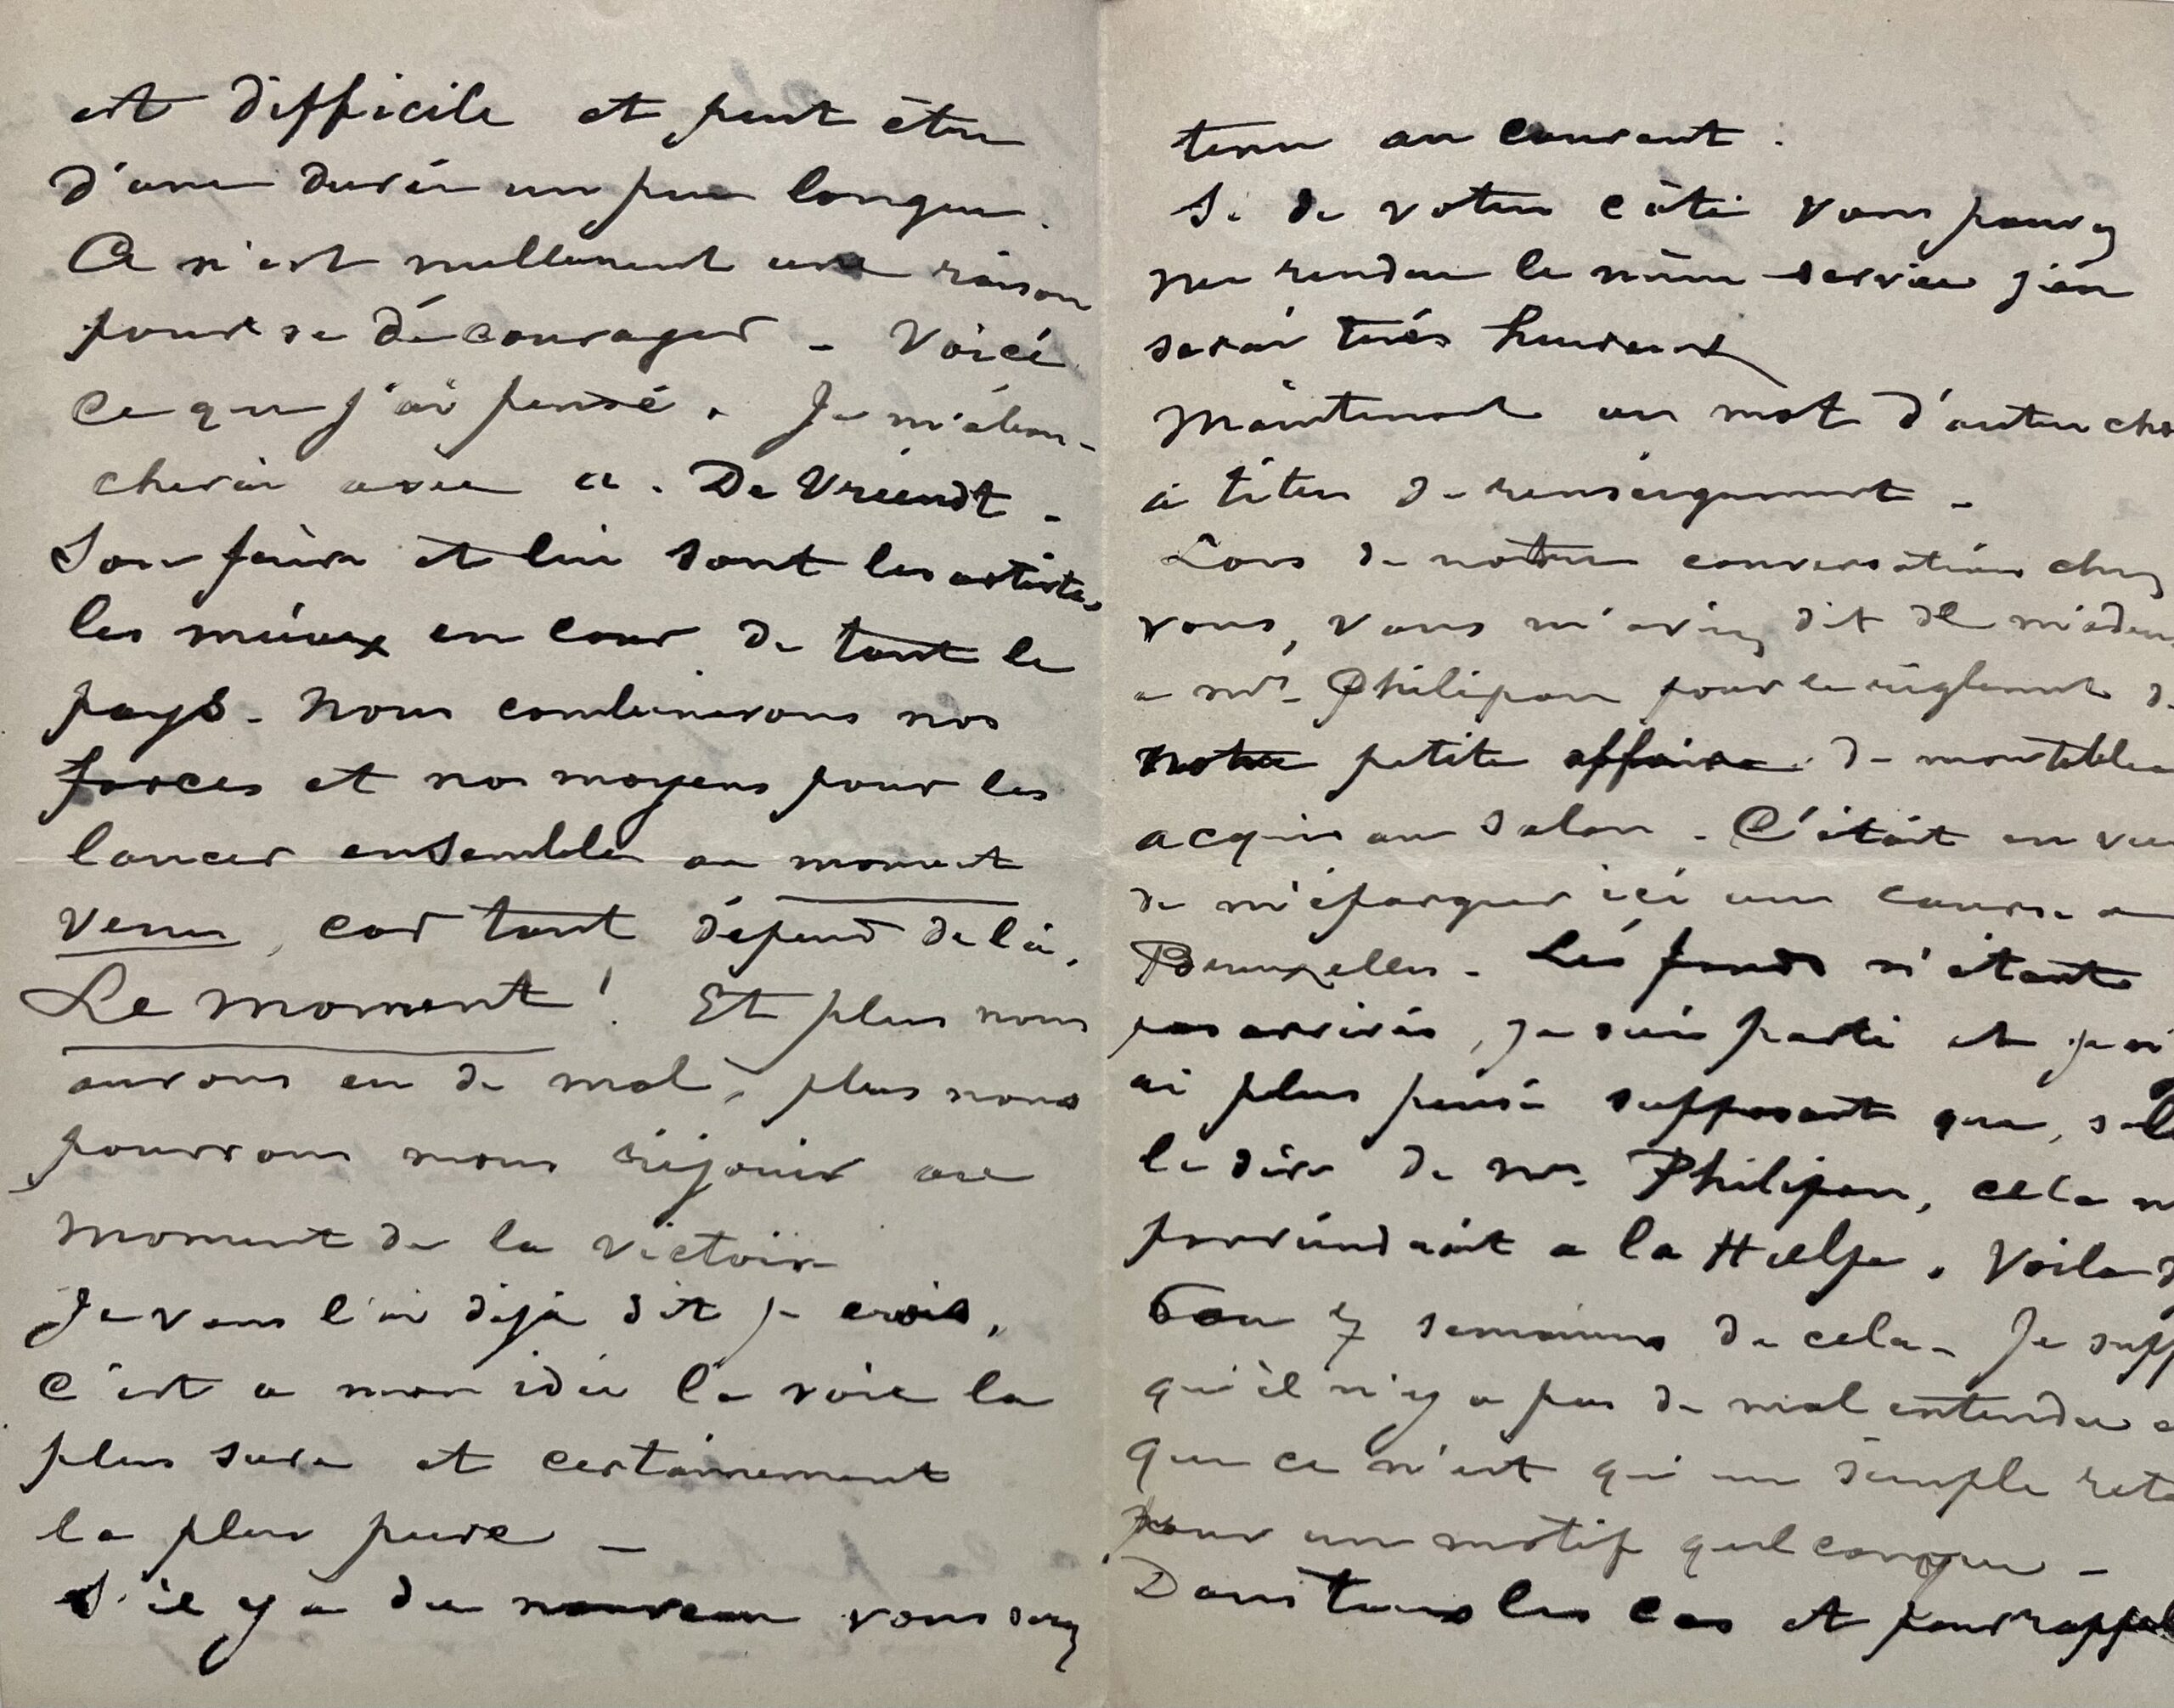 est difficile et peut être
d'une durée un peu longue.
Ce n'est nullement une raison
pour se décourager - Voici
ce que j'ai pensé. Je m'abou-
cherai avec A. De Vriendt -
Son frère et lui sont les artistes
les mieux en cour de tout le
pays - Nous combinerons nos
forces et nos moyens pour les
lancer ensemble au moment
venu, car tout dépend de là.
Le moment! Et plus nous
aurons eu de mal, plus nous
pourrons nous réjouir au
moment de la victoire
Je vous l'ai déjà dit je crois,
c'est a mon idée la voie la
plus sure et certainement
la plus pure -
S'il y a du nouveau vous serez
tenu au courant.
Si de votre côté vous pouvez
me rendre le même service j'en
serai très heureux
Maintenant un mot d'autre cho
à titre de renseignement -
Lors de notre conversation chez
vous, vous m'aviez dit de m'adres
a Mr. Philipon pour le règlement d
notre petite affaire de mon tablea
acquis au Salon - C'était en vue
de m'épargner ici une course a
Bruxelles - Les fonds n'étant
pas arrivés, je suis parti et je n'
ai plus pensé supposant que, sel
le dire de Mr. Philipon, cela m
parviendrait a la Hulpe. Voila d
bon 7 semaines de cela - Je supp
qu'il n'y a pas de mal entendu e
que ce n'est qu'un simple reta
pour un motif quelconque -
Dans tous les cas et pour rappel